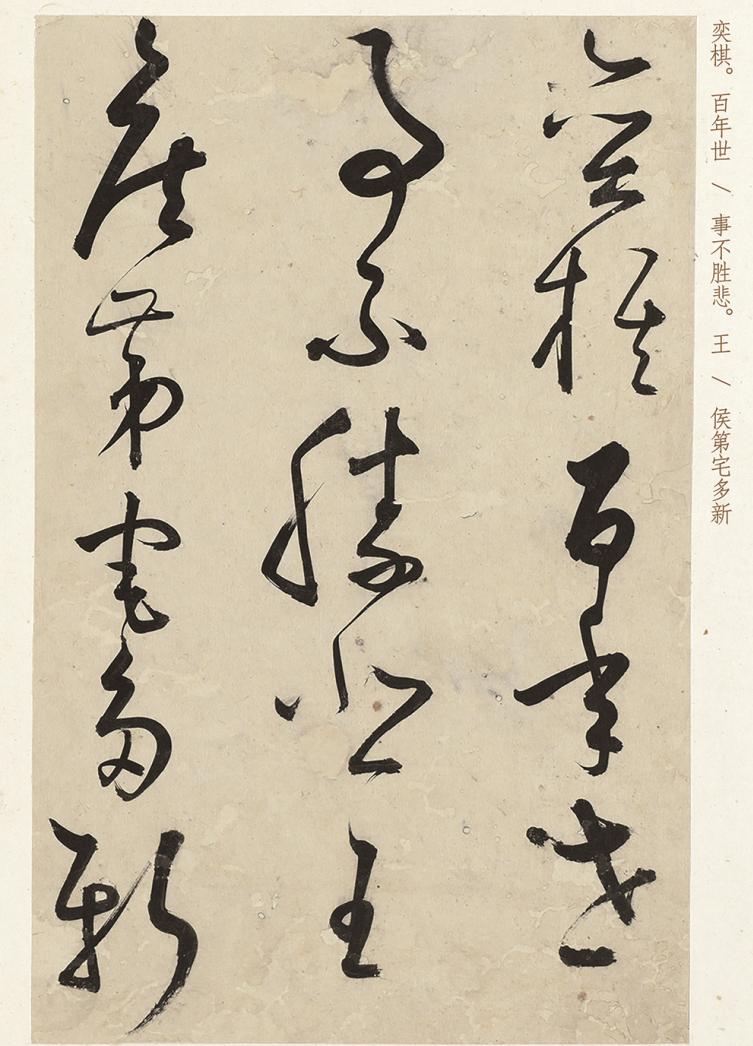 奕棋。百年世／事不胜悲。王／侯第宅多新
奕棋百年世
事不勝悲王
侯第宅多新